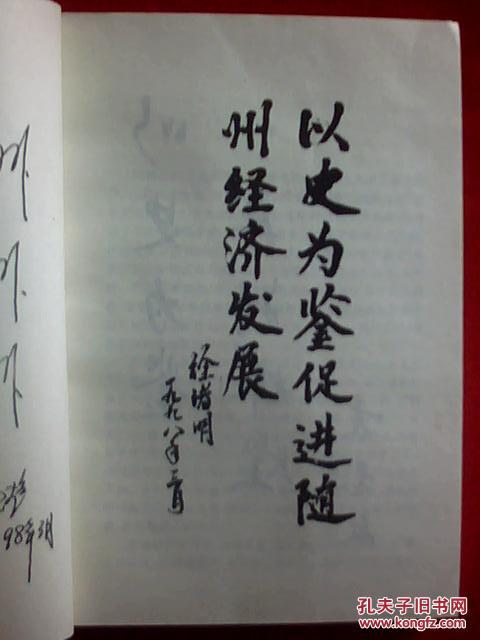 以史为鉴促进随
州经济发展
一九九八年二月
98年
孔夫子旧书网
www.kongfz.com